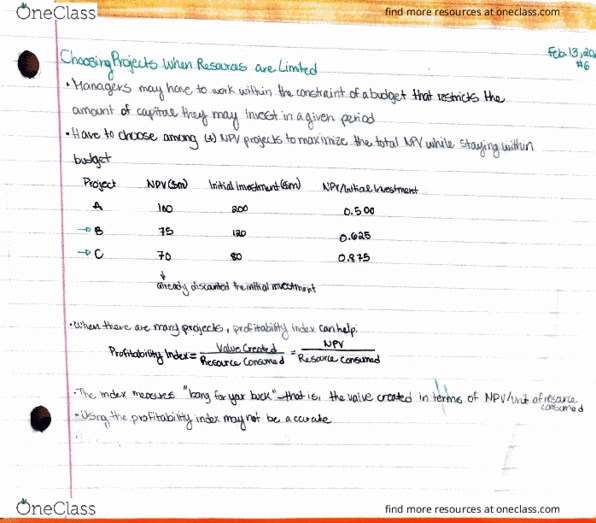 OneClass
find more resources at oneclass.com
Feb 13, 20
#6
Choosing Projects When Resources are Limited
• Managers may have to work within the constraint of a budget that restricts the
amount of capital they may invest in a given period
• Have to choose among (+) NPV projects to maximize the total NPV while staying within
budget
Project NPV ($m) Initial Investment ($m) NPV/Initial Investment
A 100 200 0.500
→ B 75 120 0.625
→ C 70 80 0.875
↓
already discounted the initial investment
• When there are many projects, profitability index can help.
Profitability Index = Value Created / Resource Consumed = NPV / Resource Consumed
• The index measures "bang for your buck" - that is, the value created in terms of NPV/unit of resource
consumed
• Using the profitability index may not be accurate
OneClass
find more resources at oneclass.com